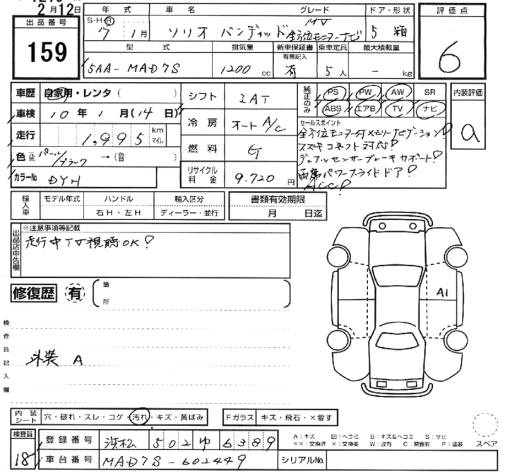 2月12日
出品番号
159
年式
車名
グレード
ドア・形状
S・H・R
7年1月
ソリオ バンディット
MV
全方位モニターナビ
5 箱
評価点
6
型式
排気量
新車保証書
有無記入
乗車定員
最大積載量
5AA-MAD7S
1200 cc
有
5人
- kg
車歴 自家用・レンタ( )
車検 10年1月(14日)
走行 1,995 km マイル
色 パープル/ブラック →(自)
カラーNo. DYH
シフト IAT
冷房 オートA/C
燃料 G
リサイクル料金 9.720円
純正のみ
PS PW AW SR
ABS エアB TV ナビ
内装評価
a
セールスポイント
全方位モニター付メモリーナビゲーション
スズキコネクト対応!
デュアルセンサーブレーキサポート!
両席パワースライドドア!
ACC!
輸入車
モデル年式
ハンドル
右H・左H
輸入区分
ディーラー・並行
書類有効期限
月 日迄
出品店申告欄
※注意事項等記載
走行中TV視聴OK!
修復歴 有
箇所
検査員記入欄
外装 A
A1
内装シート
穴・破れ・スレ・コゲ・汚れ・キズ・黄ばみ
Fガラス
キズ・飛石・×要す
検査員
18
登録番号 浜松 502 ゆ 6389
車台番号 MAD7S-602449
シリアルNo.
スペア